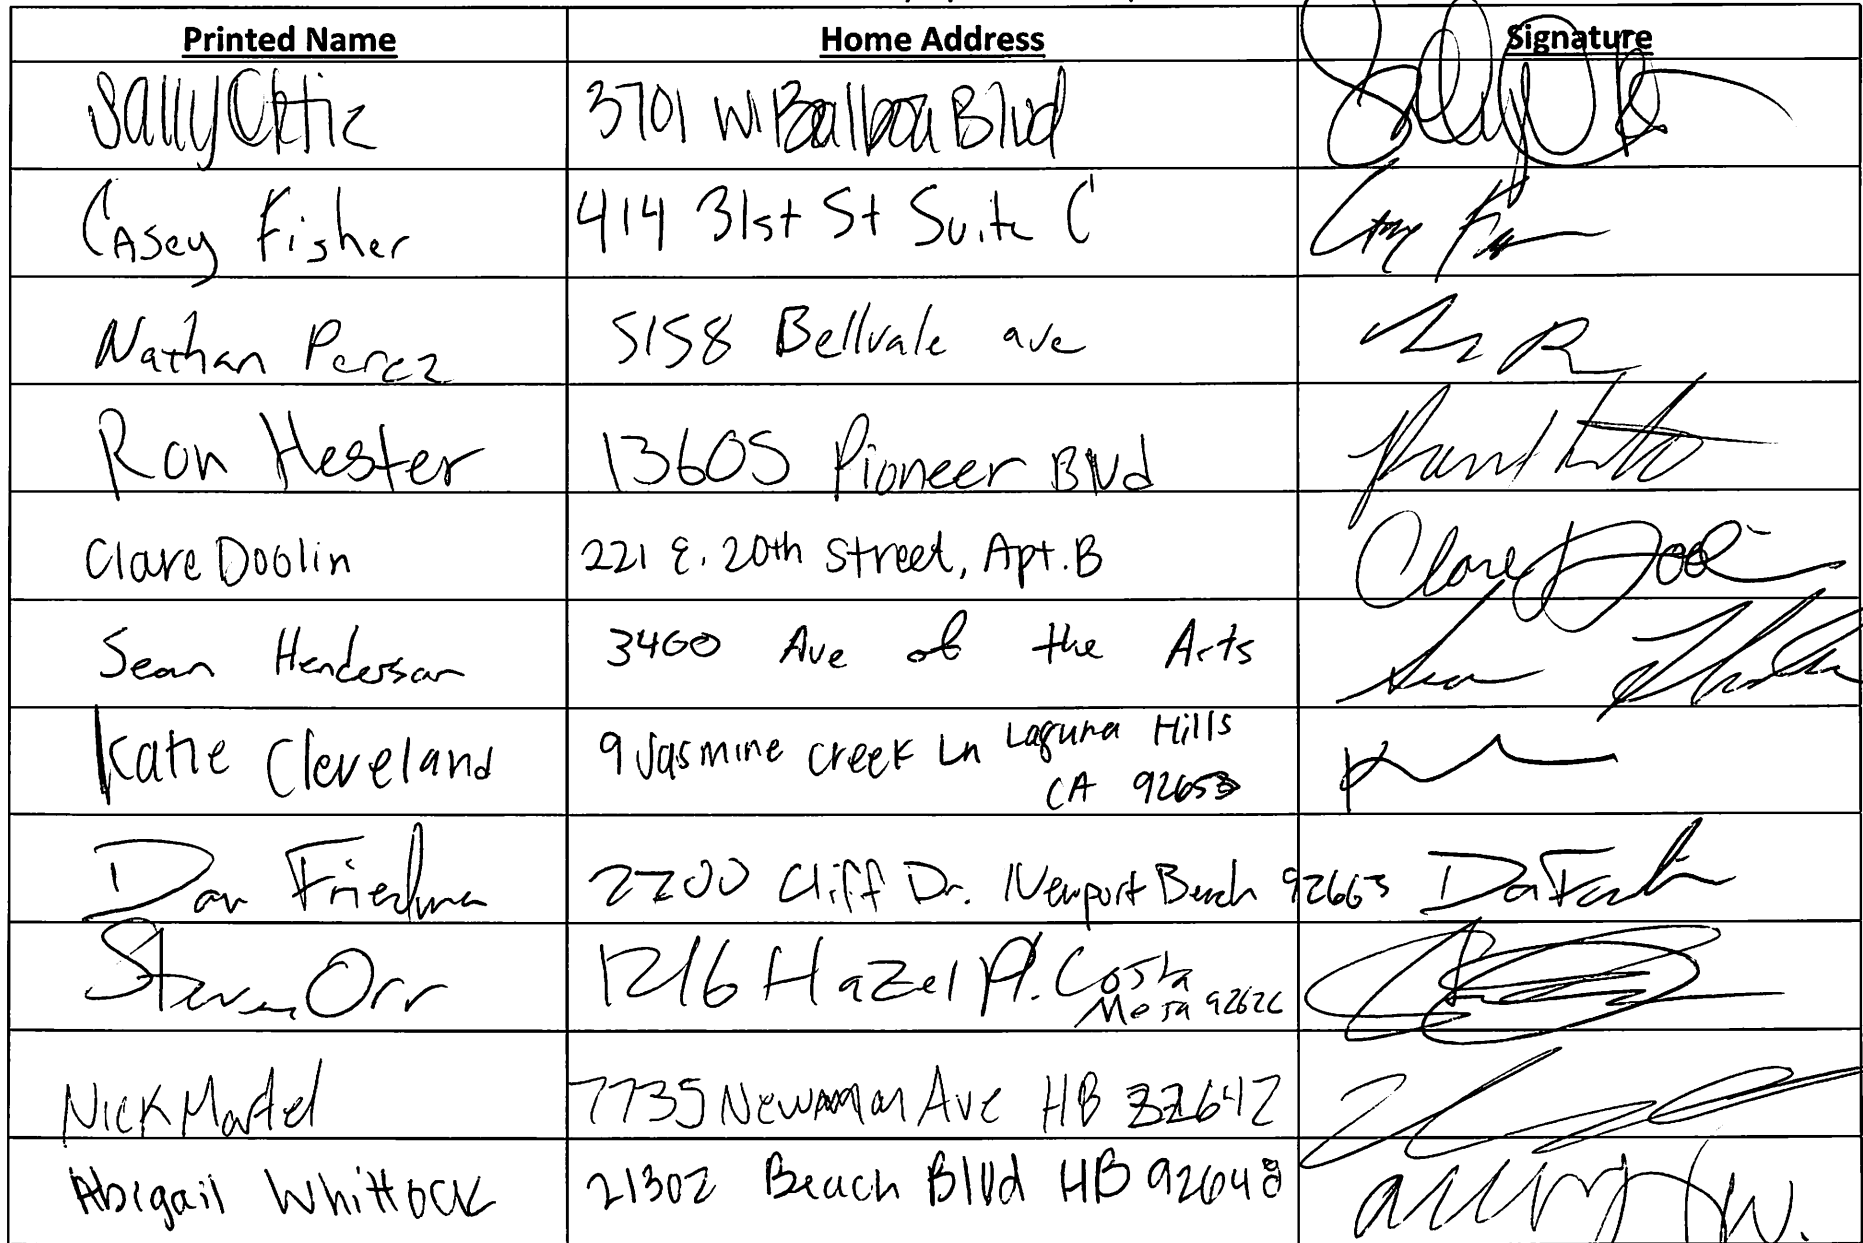 Printed Name Home Address Signature
Sally Ortiz 3701 W Balboa Blvd
Casey Fisher 414 31st St Suite C
Nathan Perez 5158 Bellvale ave
Ron Hester 13605 Pioneer Blvd
Clare Doolin 221 E. 20th Street, Apt. B Clare Doolin
Sean Henderson 3460 Ave of the Arts
Katie Cleveland 9 Jasmine Creek Ln Laguna Hills
CA 92653
Dan Friedman 2200 Cliff Dr. Newport Beach 92663
Steven Orr 1216 Hazel Pl. Costa
Mesa 92626
Nick Martel 7735 Newman Ave HB 92647
Abigail Whittock 21302 Beach Blvd HB 92648